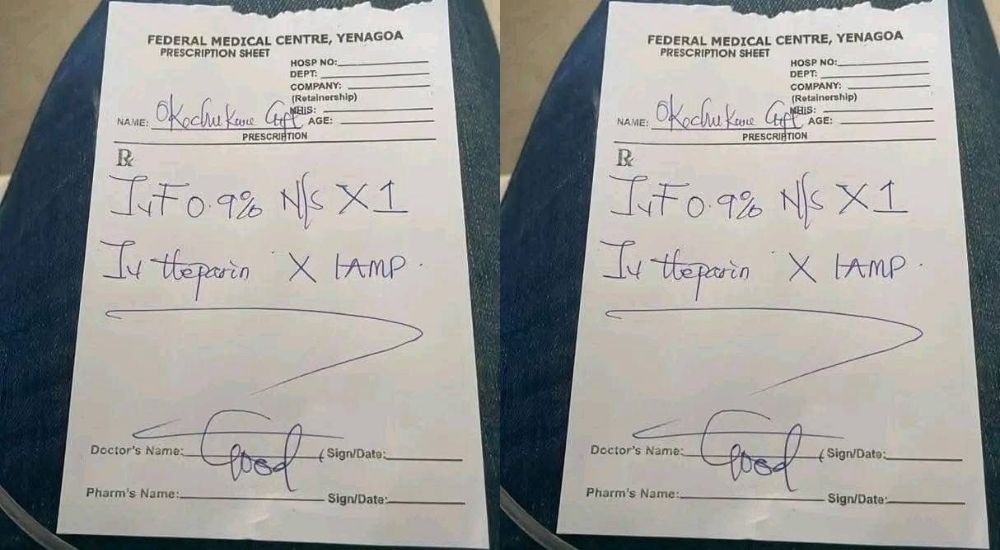 FEDERAL MEDICAL CENTRE, YENAGOA
PRESCRIPTION SHEET
HOSP NO:
DEPT:
COMPANY:
(Retainership)
NHIS:
NAME: Okochukwu Gift AGE:
PRESCRIPTION
Rx
IvF 0.9% N/S X 1
Iv Heparin X 1AMP.
Doctor's Name: Good (Sign/Date:
Pharm's Name: Sign/Date:
FEDERAL MEDICAL CENTRE, YENAGOA
PRESCRIPTION SHEET
HOSP NO:
DEPT:
COMPANY:
(Retainership)
NHIS:
NAME: Okochukwu Gift AGE:
PRESCRIPTION
Rx
IvF 0.9% N/S X 1
Iv Heparin X 1AMP.
Doctor's Name: Good (Sign/Date:
Pharm's Name: Sign/Date: